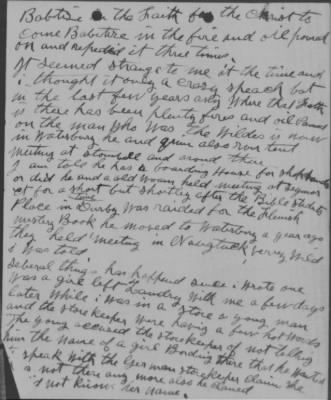 Babtize in the Faith for the Christ to
come Babitize in the fire and oil pound
on and repeded it three times,
It seemed strange to me at the time and
i thought it only a crazy speach but
in the last few years ask where that
is there has been plenty fires and oil
on the man who was the Wildes is now
in Waterbury he and also run tent
meeting at and around there
I am told he has a boarding House for
or did he and a old woman held meeting at Seymor
ect for a short but shortly after the Bible Students
Place in Derby was raided for the
mistery Book he moved to Waterbury a year ago
they held meeting in Naugtuck, very wild
I was told
Several things has happend since i wrote one
was a girl left laundry with me a few days
later while i was in a store a young man
and the storekeeper were having a few hot words
the young accused the storekeeper of not telling
him the name of a girl Bording there that he wanted
speak with the German storekeeper claim she
is not there any more also he claimed
not know her name.